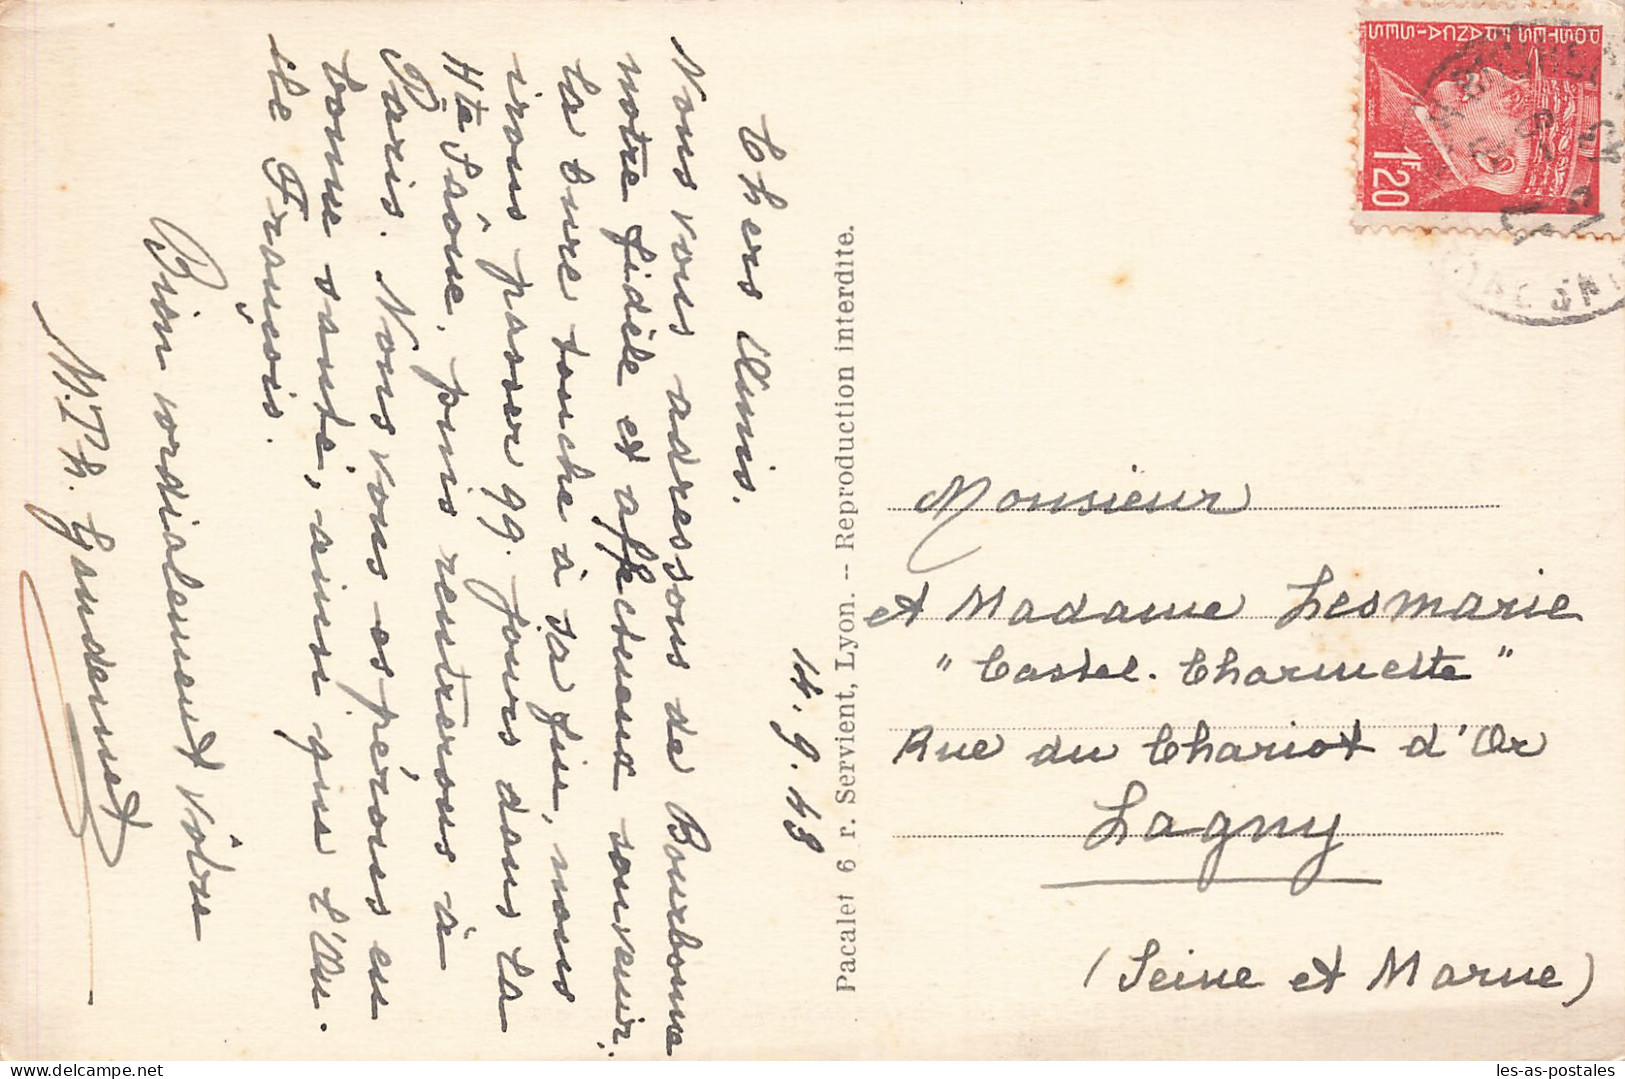 14.9.43
Chers Amis.
Nous vous adressons de Bourbonne
notre fidèle et affectueux souvenir.
La cure touche à sa fin, nous
irons passer qq. jours dans la
Hte Saône, puis rentrerons à
Paris. Nous vous espérons en
bonne santé, ainsi que l'Ou.
cle François.
Bien cordialement vôtre
M.Th. Gaudemet
Pacalet 6 r. Servient, Lyon. -- Reproduction interdite.
POSTES FRANÇAISES
1F20
Monsieur
et Madame Lesmarie
" Castel. Charmette "
Rue du Chariot d'Or
Lagny
(Seine et Marne)
les-as-postales
delcampe.net